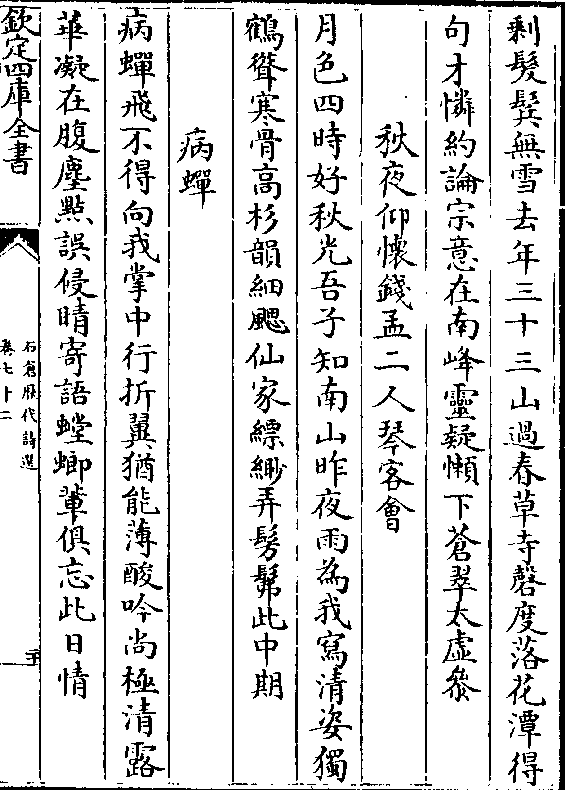 剩髮鬂無雪去年三十三山過春草寺磬度落花潭得
句才憐約論宗意在南峰靈疑懶下蒼翠太虛叅
秋夜仰懷錢孟二人琴客會
月色四時好秋光吾子知南山昨夜雨為我寫清姿獨
鶴聳寒骨高杉韻細颸仙家縹緲弄髣髴此中期
病蟬
病蟬飛不得向我掌中行折翼猶能薄酸吟尚極清露
華凝在腹塵點誤侵睛寄語螳螂輩俱忘此日情
欽定四庫全書
石倉歷代詩選
卷七十二